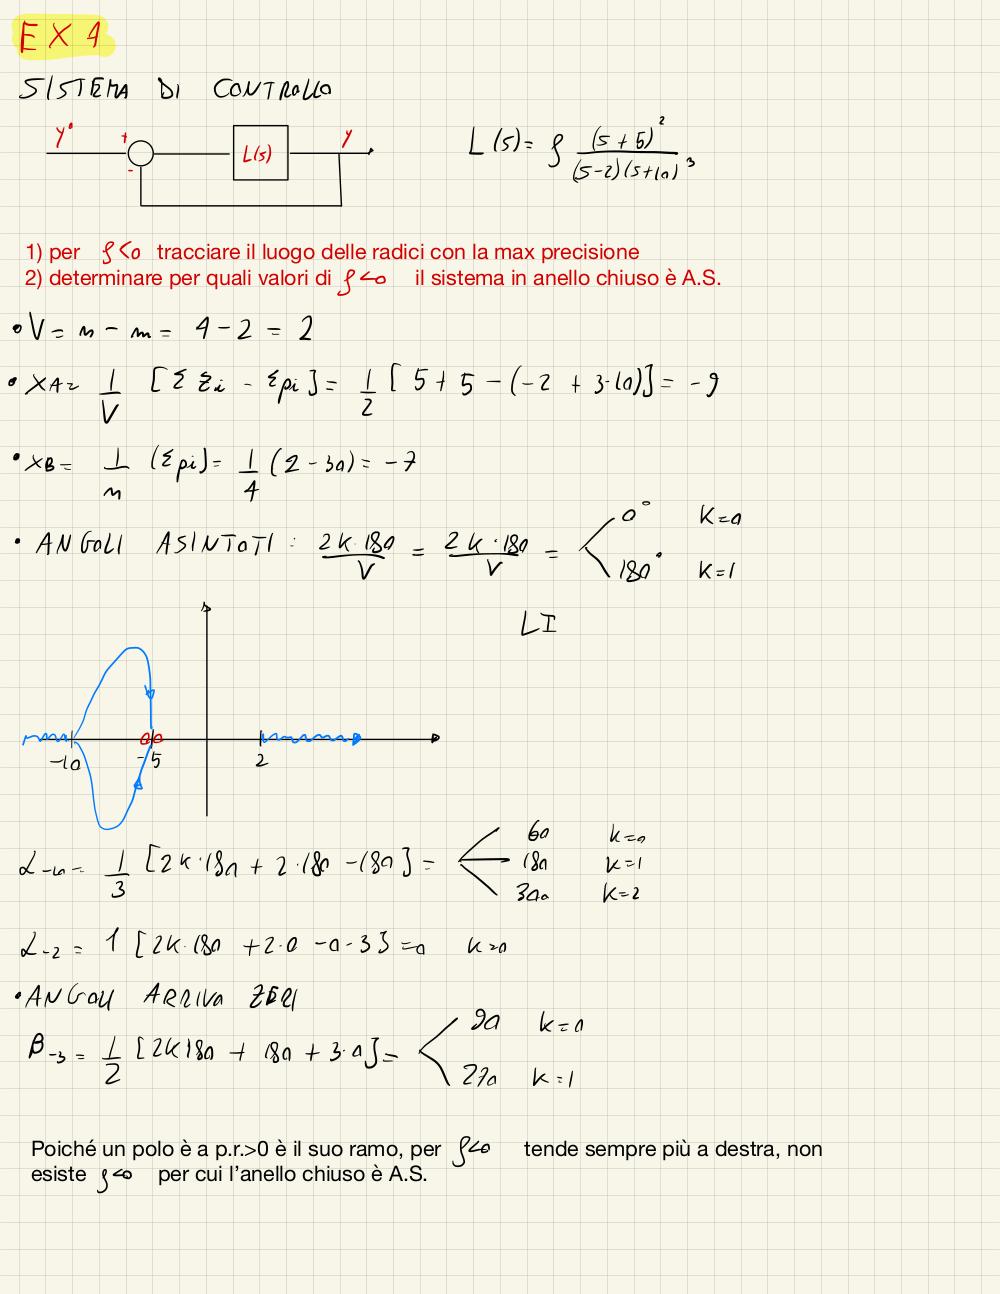 EX 4
SISTEMA DI CONTROLLO
y° + - L(s) y
L(s) = ρ (s+5)² / (s-2)(s+10)³
1) per ρ<0 tracciare il luogo delle radici con la max precisione
2) determinare per quali valori di ρ<0 il sistema in anello chiuso è A.S.
• V = n - m = 4 - 2 = 2
• XA = 1/V [Σzi - Σpi] = 1/2 [5 + 5 - (-2 + 3·10)] = -9
• XB = 1/n (Σpi) = 1/4 (2 - 30) = -7
• ANGOLI ASINTOTI : 2k·180/V = 2k·180/V = 0° k=0
180° k=1
LI
-10 -5 2
α-10 = 1/3 [2k·180 + 2·180 - 180] = 60 k=0
180 k=1
300 k=2
α-2 = 1 [2k·180 + 2·0 - 0·3] = 0 k=0
• ANGOLI ARRIVO ZERI
β-3 = 1/2 [2k180 + 180 + 3·0] = 90 k=0
270 k=1
Poiché un polo è a p.r.>0 è il suo ramo, per ρ<0 tende sempre più a destra, non
esiste ρ<0 per cui l'anello chiuso è A.S.